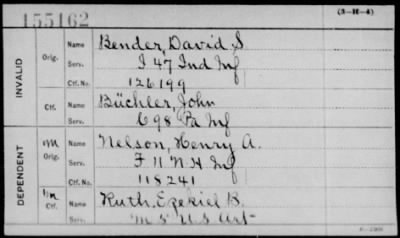 155162
(3-H-4)
INVALID
Orig. Name Bender, David S
Serv. I 47 Ind Inf
Ctf. No. 126199
Ctf. Name Büchler, John
Serv. C 98 Pa Inf
DEPENDENT
Orig. Name Nelson, Henry A.
Serv. F 11 N H Inf
Ctf. No. 118241
Ctf. Name Ruth, Ezekiel B.
Serv. M 5 U S Art